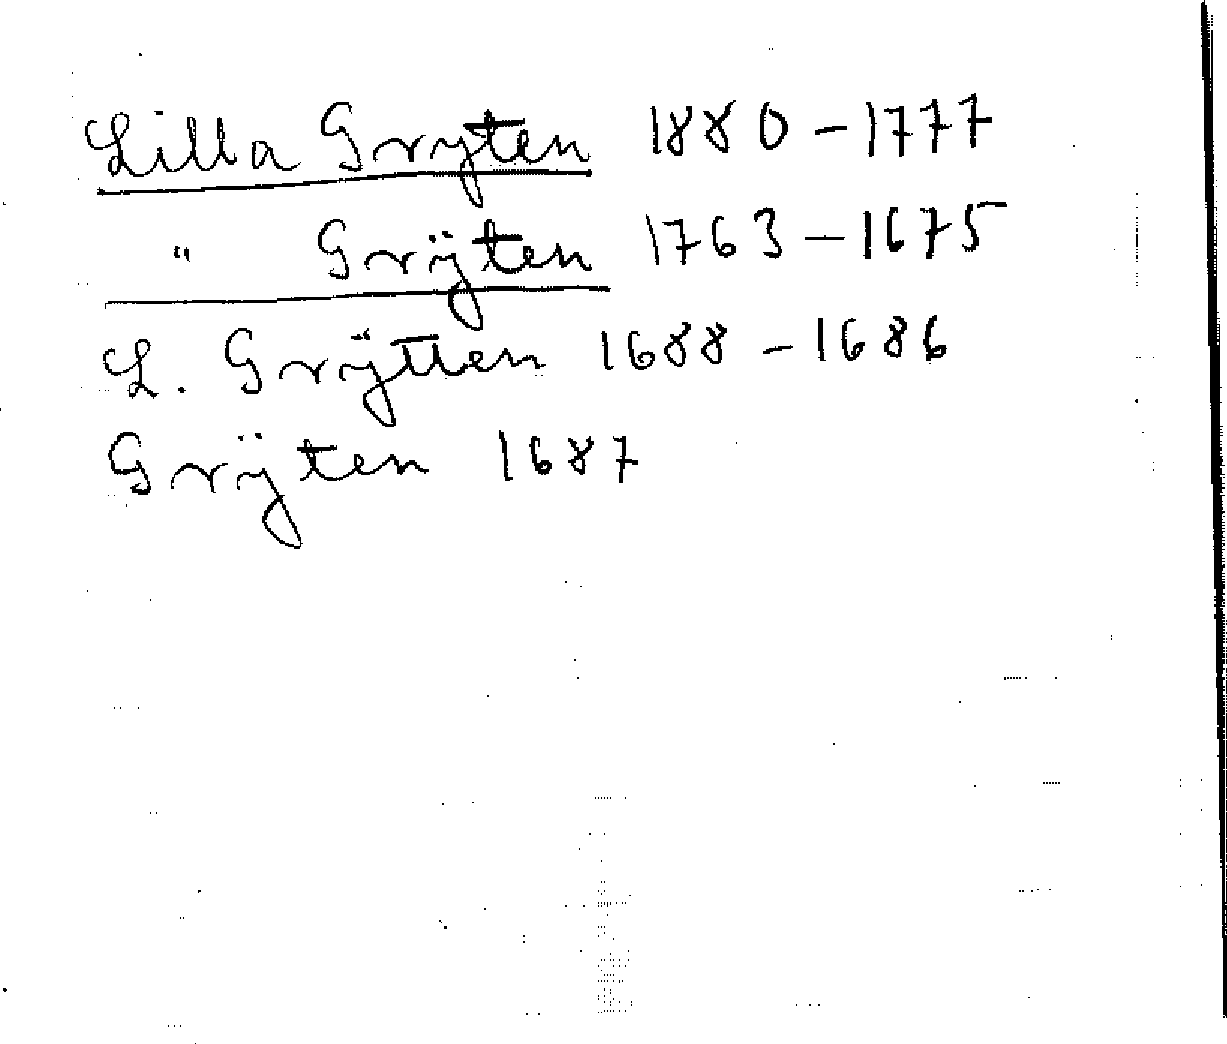 Lilla Gryten 1880 - 1777
" Grÿten 1763 - 1675
L. Grÿtten 1688 - 1686
Grÿten 1687